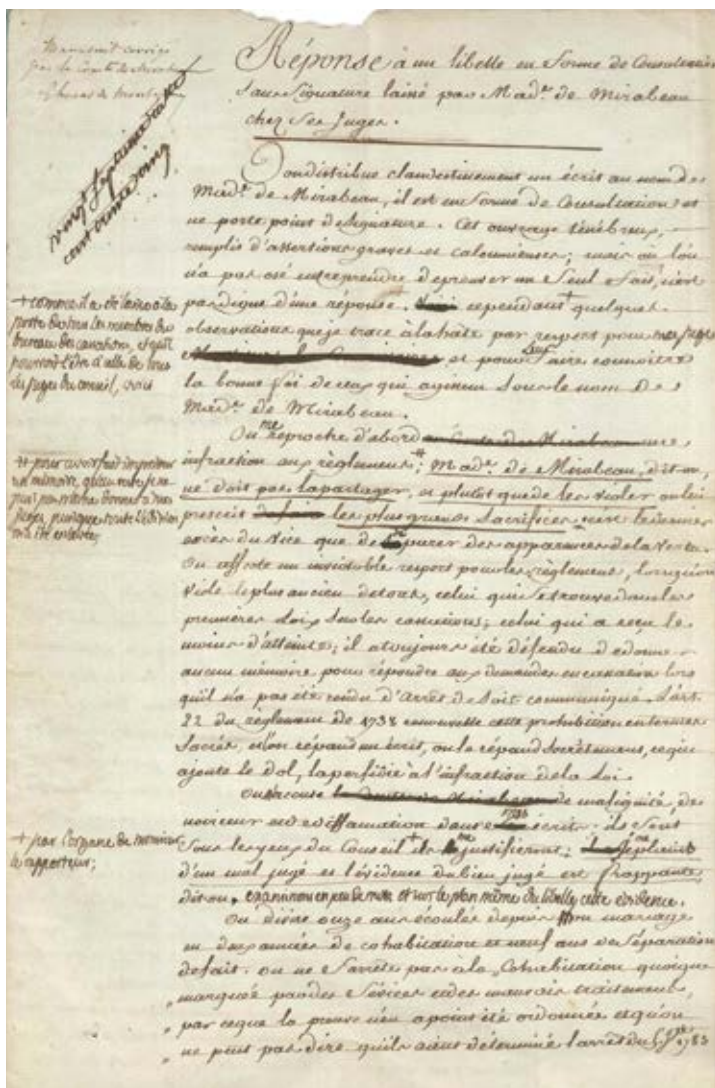 Manuscrit corrigé
par le Comte de Mirabeau
Réponse à un libelle en forme de Consultation
sans signature laissé par Mad.e de Mirabeau
chez ses Juges.
vingt septieme
cent trente cinq
On distribue clandestinement un écrit au nom de
Mad.e de Mirabeau, il est en forme de Consultation et
ne porte point de signature. Cet ouvrage ténébreux,
remplis d'assertions graves et calomnieuses; mais où l'on
n'a pas osé entreprendre de prouver un seul fait, n'est
pas digne d'une réponse. cependant + quelques
observations que je trace à la hâte par respect pour mes juges
et pour faire connoitre
la bonne foi de ceux qui agissent sous le nom de
Mad.e de Mirabeau.
+ comme il a été laissé à la
porte de tous les membres du
bureau de cassation, et qu'il
pourroit l'être à celle de tous
les juges du conseil, voici
On me reproche d'abord une
infraction aux règlemens; # Mad.e de Mirabeau, dit-on,
ne doit pas la partager, et plutot que de les violer on lui
prescrit les plus grands sacrifices, c'est le dernier
excès du vice que de se parer des apparences de la vertu.
On affecte un invincible respect pour les règlemens, lorsqu'on
viole le plus ancien de tous, celui qui se trouve dans les
premieres loix sur les cassations; celui qui a reçu le
moins d'atteinte; il a toujours été défendu de donner
aucun mémoire pour répondre aux demandes en cassation lors
qu'il n'a pas été rendu d'Arrêt de soit communiqué. L'art.
22 du règlement de 1738 renouvelle cette prohibition en termes
sacrés, et l'on répand un écrit, on le répand secrètement, ce qui
ajoute le dol, la perfidie à l'infraction de la Loi.
# pour avoir fait imprimer
un mémoire, qu'au reste je ne
puis pas même donner à mes
juges, puisque toute l'édition
m'a été enlevée;
On m'accuse de malignité, de
noirceur et de diffamation dans mes écrits: ils sont
sous les yeux du Conseil + ils me justifieront;
d'un mal jugé et l'évidence du bien jugé est frappante
dit on. examinons en peu de mots et sur le plan même du libelle cette évidence.
+ par l'organe de monsieur
le rapporteur;
On divise onze ans écoulés depuis mon mariage
en deux années de cohabitation et neuf ans de séparation
de fait. on ne s'arrête pas à la cohabitation quoique
" marquée par des sévices et des mauvais traitemens,
" par ce que la preuve n'en a point été ordonnée et qu'on
" ne peut pas dire qu'ils aient déterminé l'arrêt du 5 1783